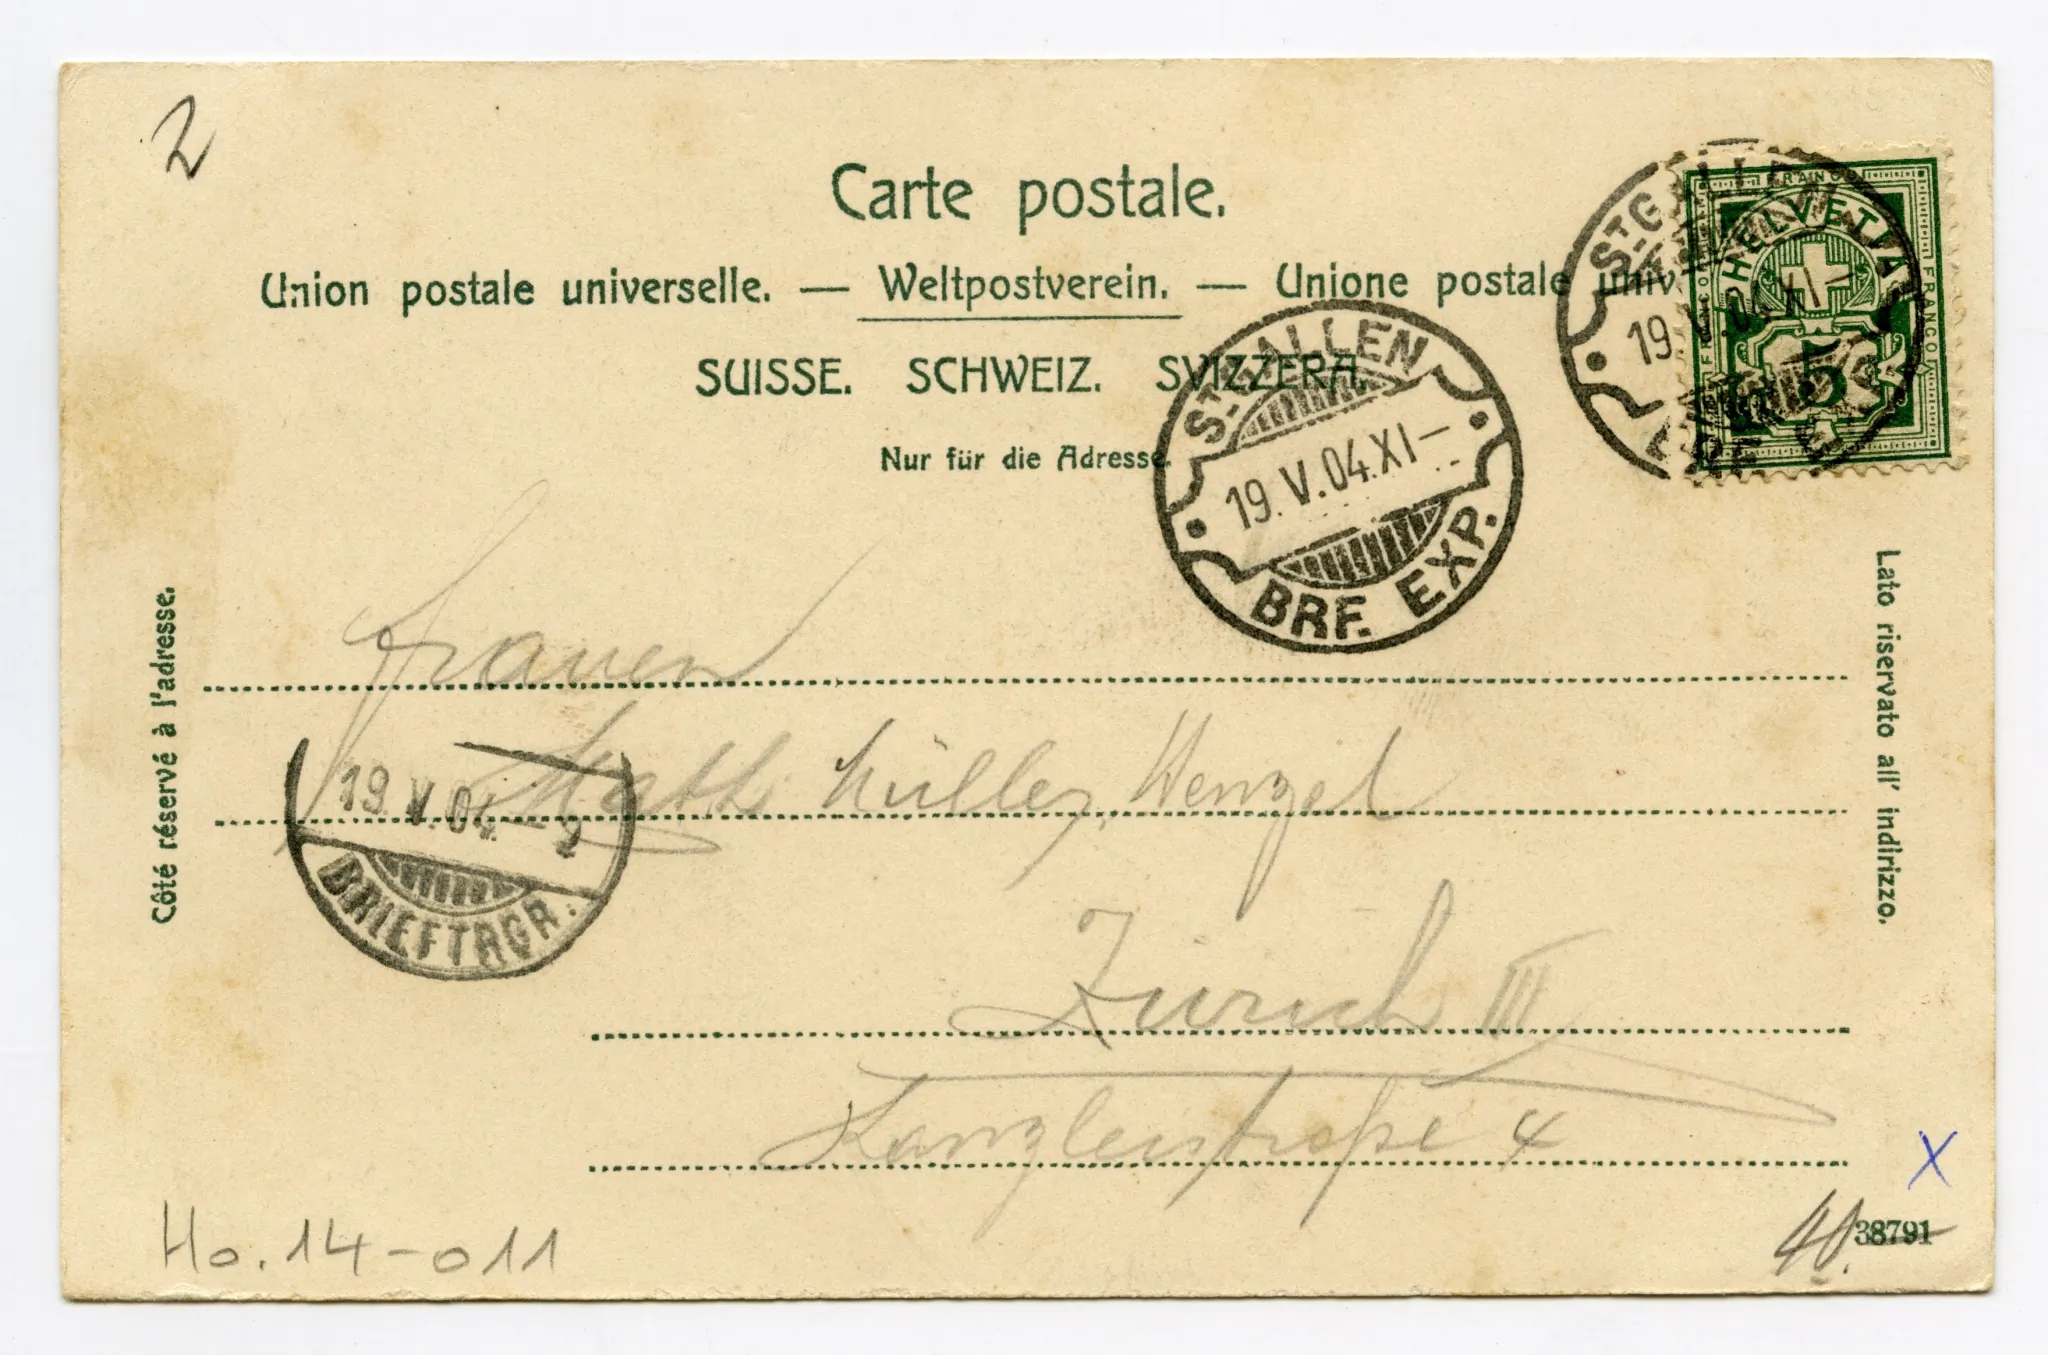 2
Carte postale.
Union postale universelle. — Weltpostverein. — Unione postale univ
SUISSE. SCHWEIZ. SVIZZERA.
Nur für die Adresse.
FRANCO
HELVETIA
FRANCO
5
ST. GALLEN
19. V. 04. XI –
ST. GALLEN
19. V. 04. XI –
BRF. EXP.
Côté réservé à l'adresse.
Lato riservato all' indirizzo.
Frauen
Müller, Wenzel
19. V. 04. – 2
BRIEFTRGR.
Zürich III
Kanzleistraße 4
Ho. 14-011
X
40.
38791